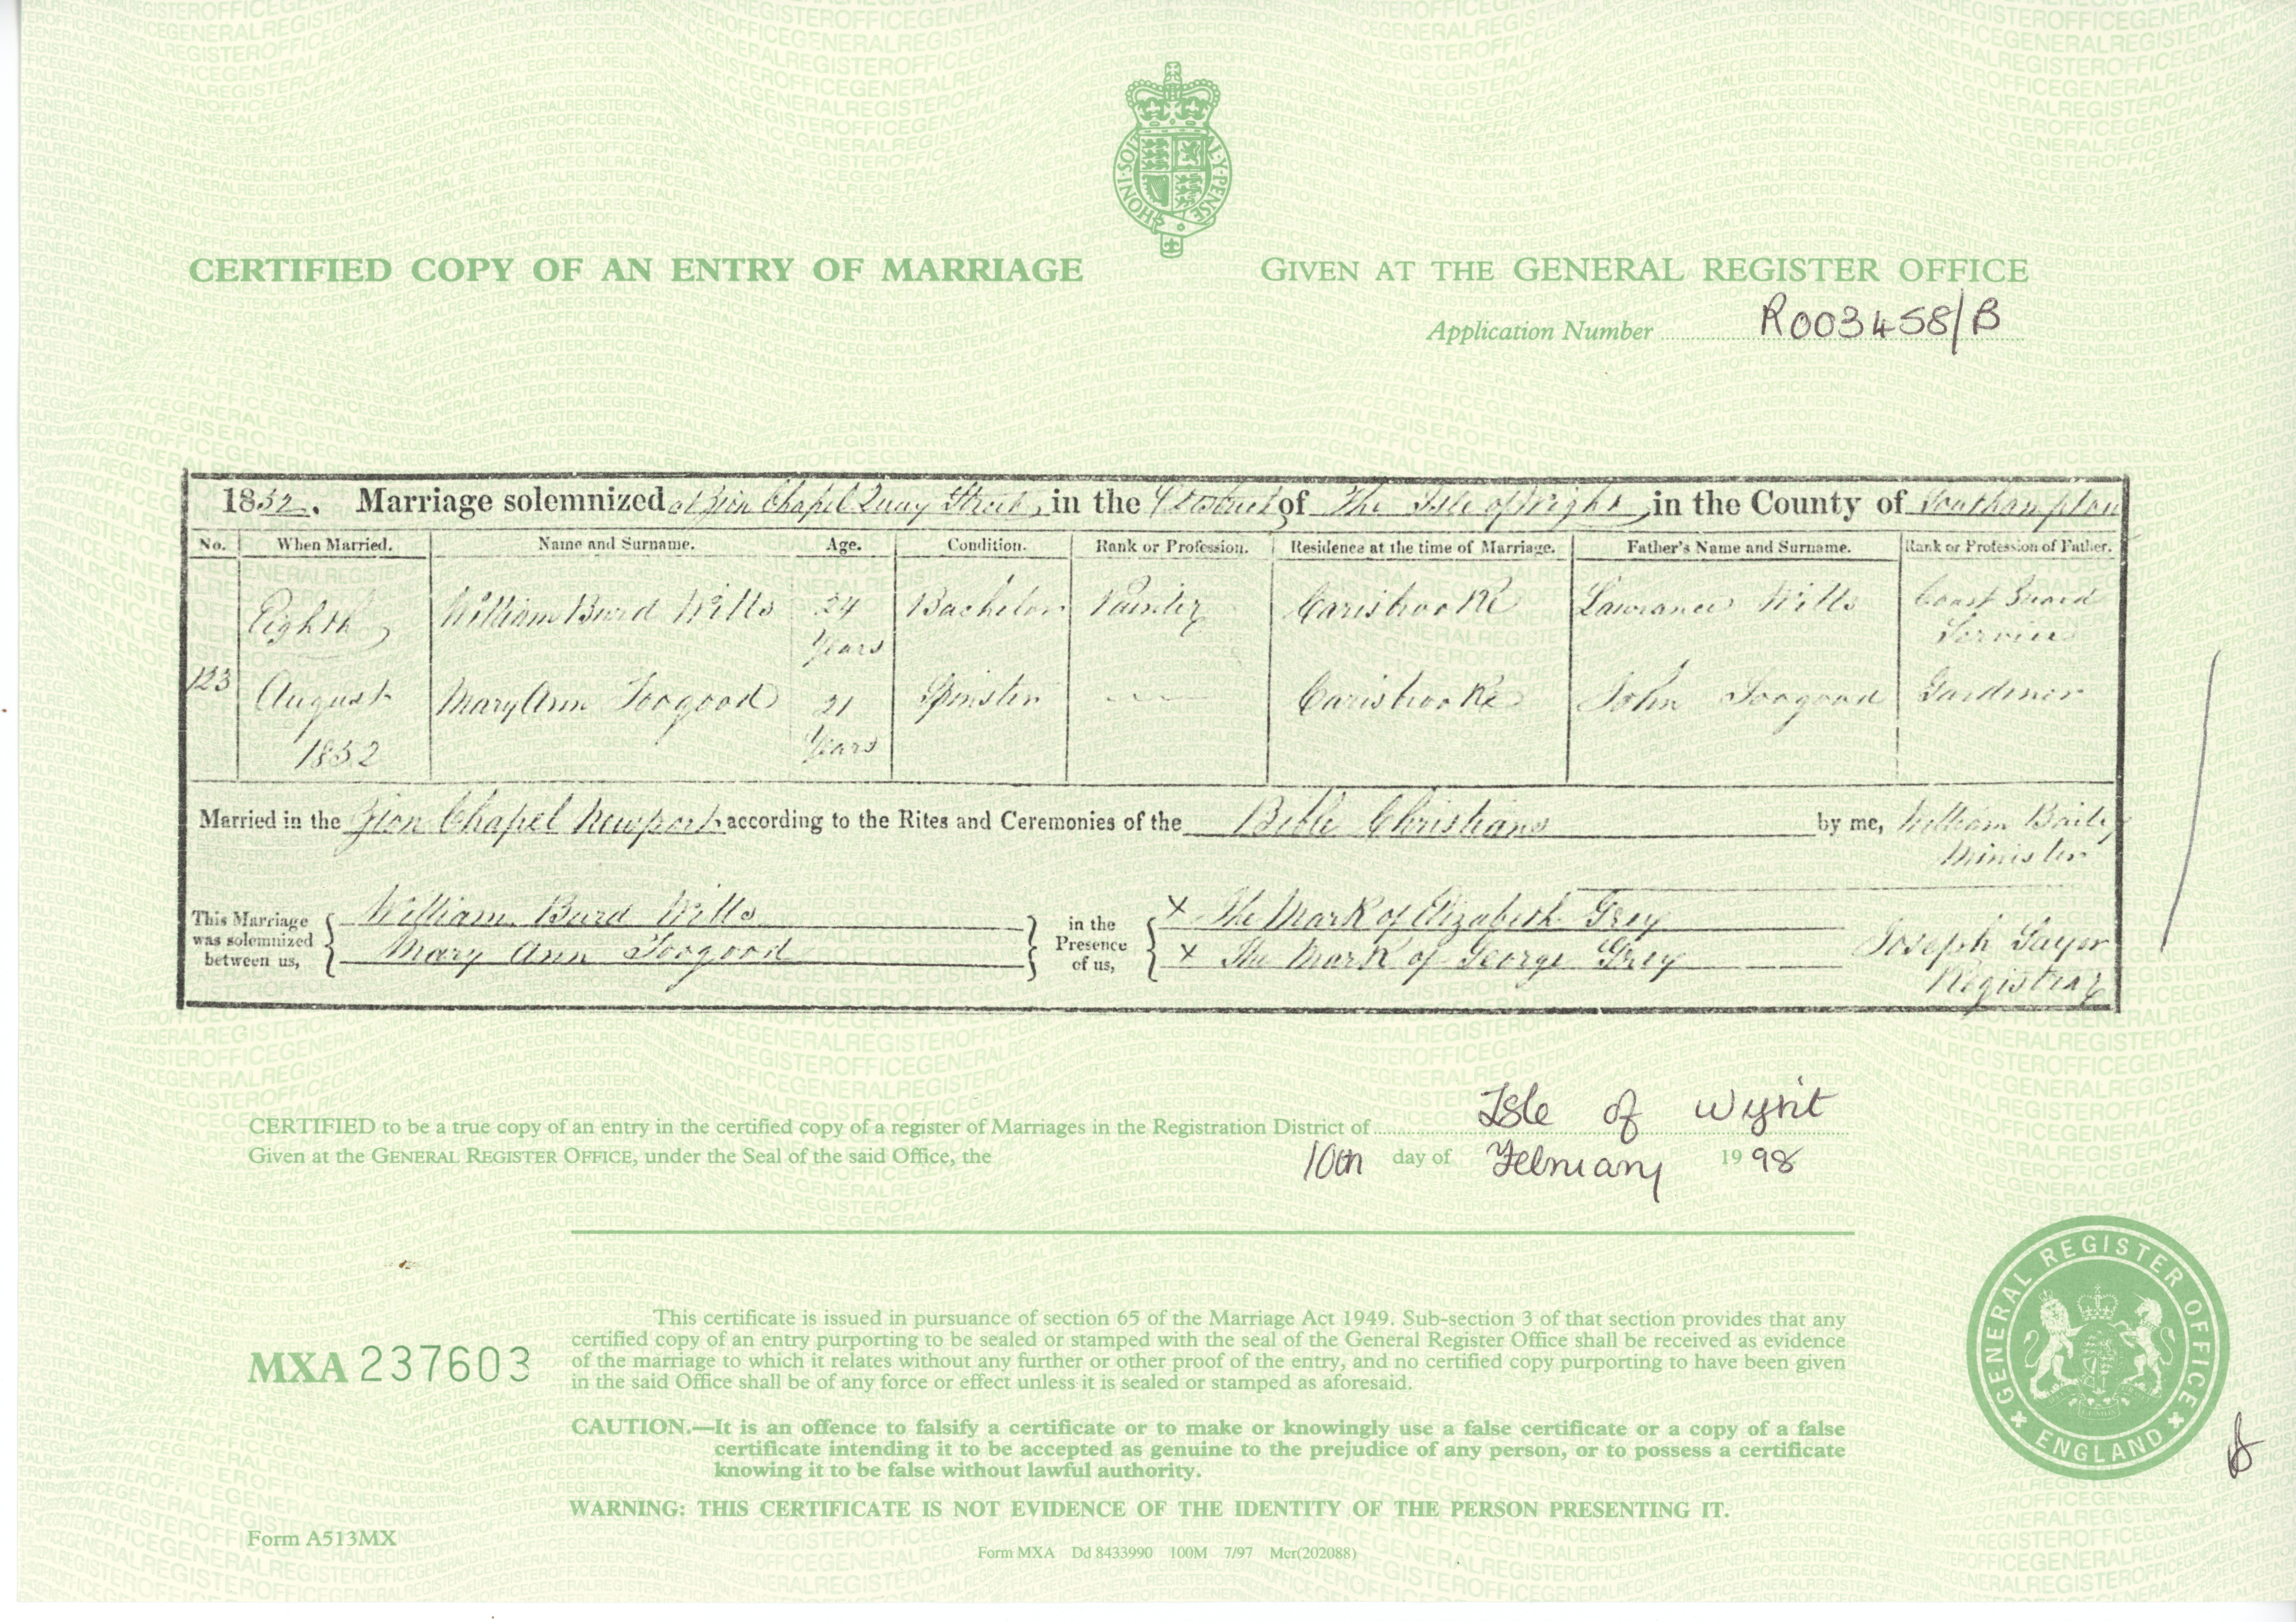 HONI·SOIT Y·PENSE
CERTIFIED COPY OF AN ENTRY OF MARRIAGE
GIVEN AT THE GENERAL REGISTER OFFICE
Application Number R003458/B
1852. Marriage solemnized at Zion Chapel Quay Street, in the District of The Isle of Wight, in the County of Southampton
No. When Married. Name and Surname. Age. Condition. Rank or Profession. Residence at the time of Marriage. Father's Name and Surname. Rank or Profession of Father.
Eighth William Burd Wills 24 Bachelor Painter Carisbrooke Lawrance Wills Coast Guard
Years Service
123 August Mary Ann Toogood 21 Spinster Carisbrooke John Toogood Gardener
1852 Years
Married in the Zion Chapel Newport according to the Rites and Ceremonies of the Bible Christians by me, William Baily
Minister
This Marriage was solemnized between us,
William Burd Wills
Mary Ann Toogood
in the Presence of us,
X The Mark of Elizabeth Grey
X The Mark of George Grey
Joseph Sayer
Registrar
CERTIFIED to be a true copy of an entry in the certified copy of a register of Marriages in the Registration District of Isle of Wight
Given at the GENERAL REGISTER OFFICE, under the Seal of the said Office, the 10th day of February 1998
MXA 237603
This certificate is issued in pursuance of section 65 of the Marriage Act 1949. Sub-section 3 of that section provides that any
certified copy of an entry purporting to be sealed or stamped with the seal of the General Register Office shall be received as evidence
of the marriage to which it relates without any further or other proof of the entry, and no certified copy purporting to have been given
in the said Office shall be of any force or effect unless it is sealed or stamped as aforesaid.
CAUTION.—It is an offence to falsify a certificate or to make or knowingly use a false certificate or a copy of a false
certificate intending it to be accepted as genuine to the prejudice of any person, or to possess a certificate
knowing it to be false without lawful authority.
WARNING: THIS CERTIFICATE IS NOT EVIDENCE OF THE IDENTITY OF THE PERSON PRESENTING IT.
GENERAL REGISTER OFFICE
ENGLAND
Form A513MX
Form MXA Dd 8433990 100M 7/97 Mcr(202088)